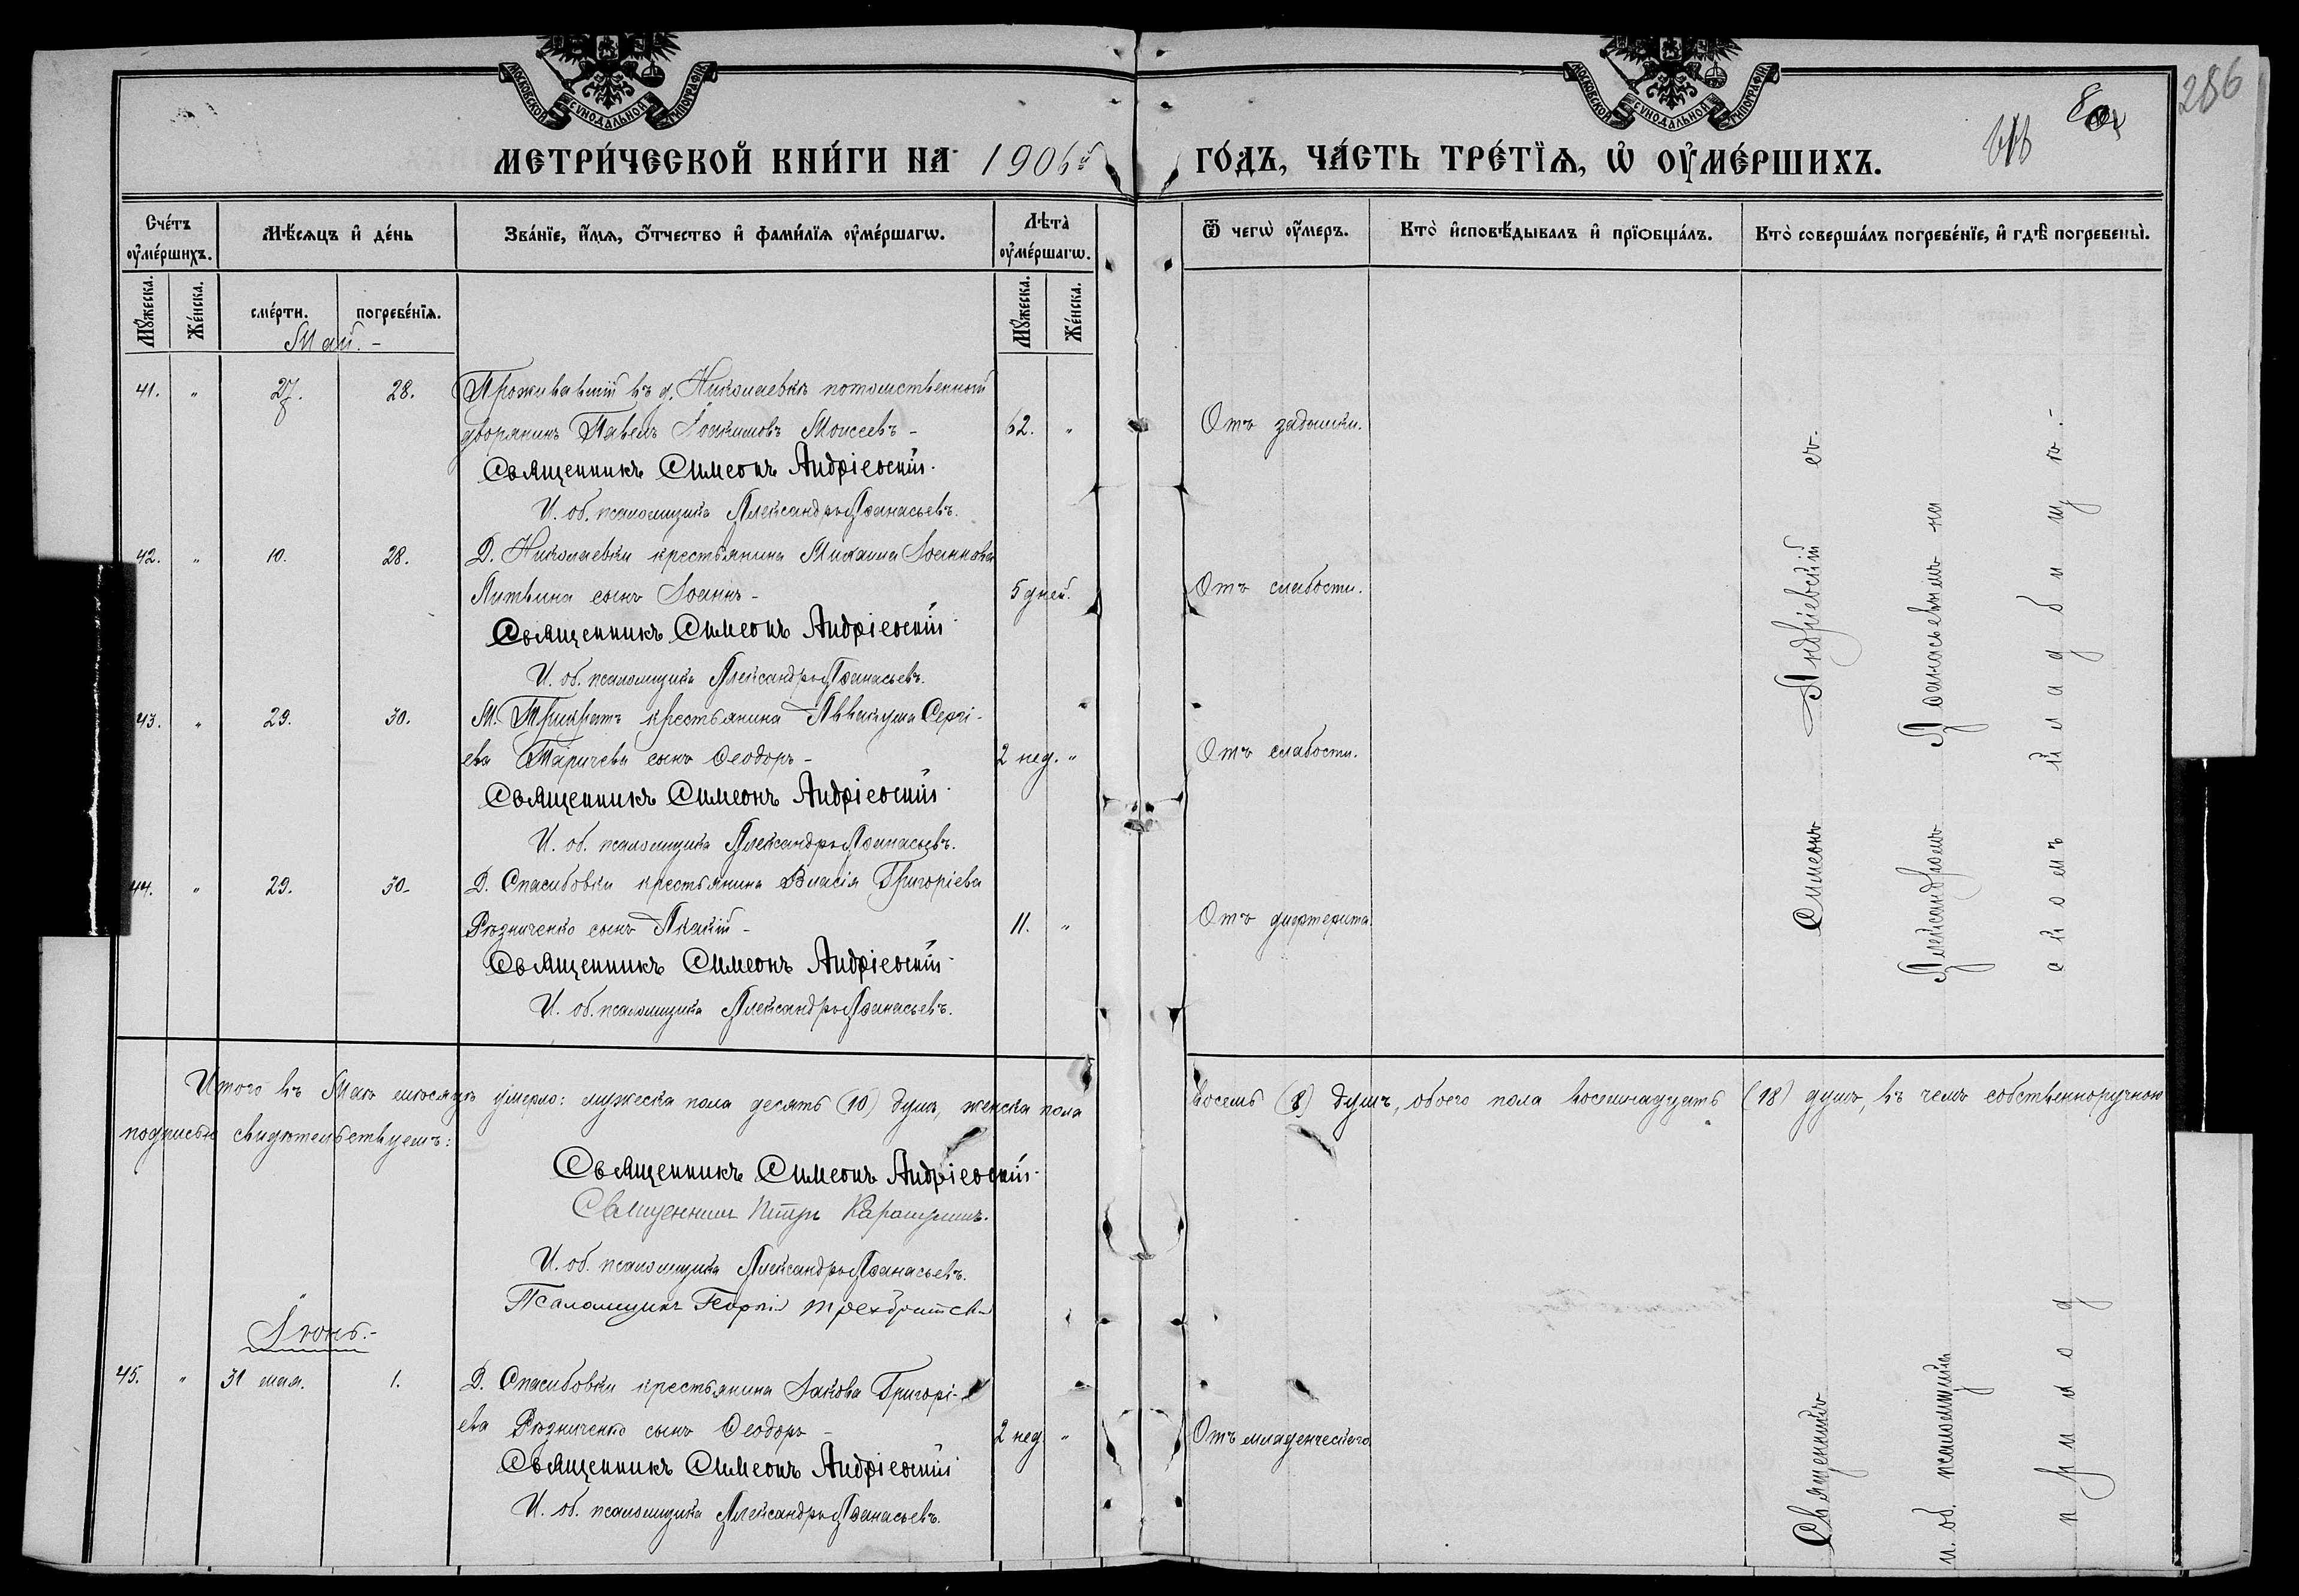 МОСКОВСКОЙ СѴНОДАЛЬНОЙ ТИПОГРАФІИ
МОСКОВСКОЙ СѴНОДАЛЬНОЙ ТИПОГРАФІИ
286
МЕТРИ́ЧЕСКОЙ КНИ́ГИ НА 1906й ГО́ДЪ, ЧА́СТЬ ТРЕ́ТІѦ, Ѡ҆ ОУ҆МЕ́РШИХЪ.
Сче́тъ оу҆ме́ршихъ.
Мѣ́сѧцъ и҆ де́нь
Зва́нїе, и҆́мѧ, ѻ҆́тчество и҆ фами́лїѧ оу҆ме́ршагѡ.
Лѣта̀ оу҆ме́ршагѡ.
Ѿ чегѡ̀ оу҆́меръ.
Кто̀ и҆сповѣ́дывалъ и҆ прїѡбща́лъ.
Кто̀ соверша́лъ погребе́нїе, и҆ гдѣ̀ погребены̀.
Мꙋ́жеска. Же́нска. сме́рти. погребе́нїѧ. Мꙋ́жеска. Же́нска.
Май. -
41. " 27. 28. Проживавшій въ д. Николаевкѣ потомственный
дворянинъ Павелъ Іоакимовъ Моисеевъ - 62. " Отъ задышки.
Священникъ Симеонъ Андріевскій.
И. об. псаломщика Александръ Аѳанасьевъ.
42. " 10. 28. Д. Николаевки крестьянина Михаила Іоаннова
Литвина сынъ Іоаннъ - 5 дней. Отъ слабости.
Священникъ Симеонъ Андріевскій
И. об. псаломщика Александръ Аѳанасьевъ.
43. " 29. 30. М. Трикратъ крестьянина Аввакума Сергі-
ева сынъ Ѳеодоръ - 2 нед. " Отъ слабости.
Священникъ Симеонъ Андріевскій
И. об. псаломщика Александръ Аѳанасьевъ.
44. " 29. 30. Д. Спасибовки крестьянина Власія Григоріева
Рѣзниченко сынъ Акакій - 11. " Отъ дифтерита
Священникъ Симеонъ Андріевскій
И. об. псаломщика Александръ Аѳанасьевъ.
Итого въ Маѣ мѣсяцѣ умерло: мужеска пола десять (10) душъ, женска пола восемь (8) душъ, обоего пола восемнадцать (18) душъ, въ чемъ собственноручною
подписью свидѣтельствуемъ:
Священникъ Симеонъ Андріевскій
Священникъ Петръ
И. об. псаломщика Александръ Аѳанасьевъ.
Псаломщикъ Георгій
Іюнь. -
45. " 31 мая. 1. Д. Спасибовки крестьянина Іакова Григорі-
ева Рѣзниченко сынъ Ѳеодоръ - 2 нед. " Отъ младенческаго.
Священникъ Симеонъ Андріевскій
И. об. псаломщика Александръ Аѳанасьевъ.
Священникъ Симеонъ Андріевскій съ
и. об. псаломщика Александромъ Аѳанасьевымъ на
приходскомъ кладбищѣ. -